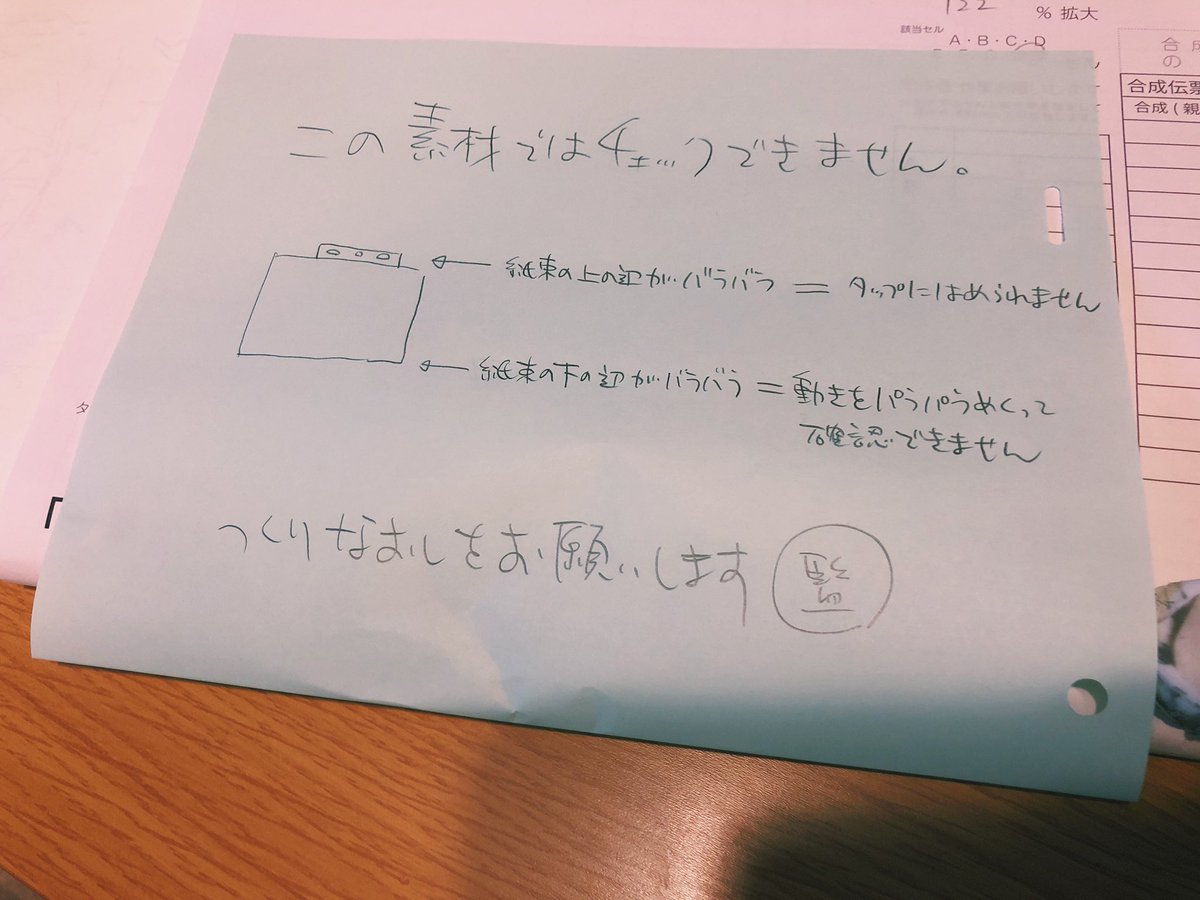 122 % 拡大
該当セル
A・B・C・D
合成伝票
合成(親
この素材ではチェックできません。
紙束の上の辺がバラバラ = タップにはめられません
紙束の下の辺がバラバラ = 動きをパラパラめくって
確認できません
つくりなおしをお願いします 監